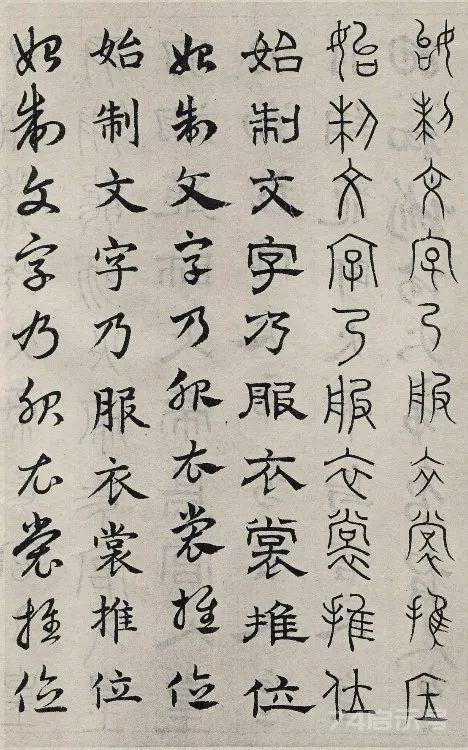 始制文字乃服衣裳推位
始制文字乃服衣裳推位
始制文字乃服衣裳推位
始制文字乃服衣裳推位
始制文字乃服衣裳推位
始制文字乃服衣裳推位
74启示号